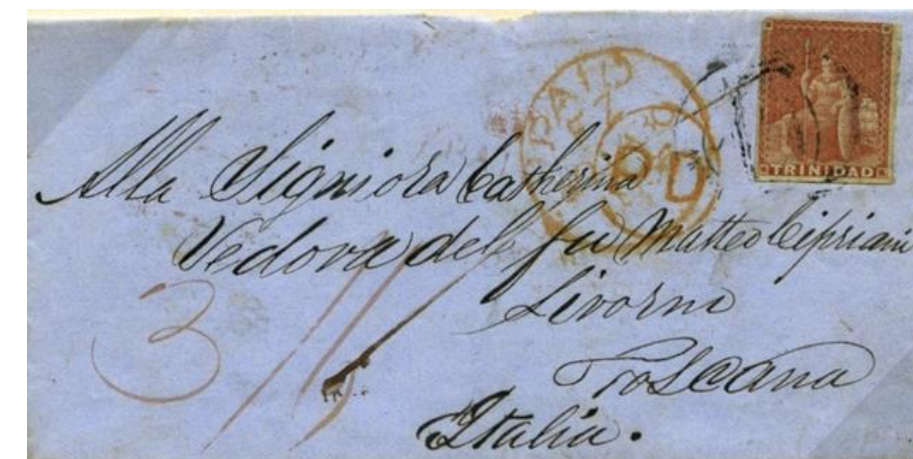 PAID
PD
TRINIDAD
Alla Signiora Catherina
Vedova del fu Matteo Cipriani
Livorno
Toscana
Italia.
3/